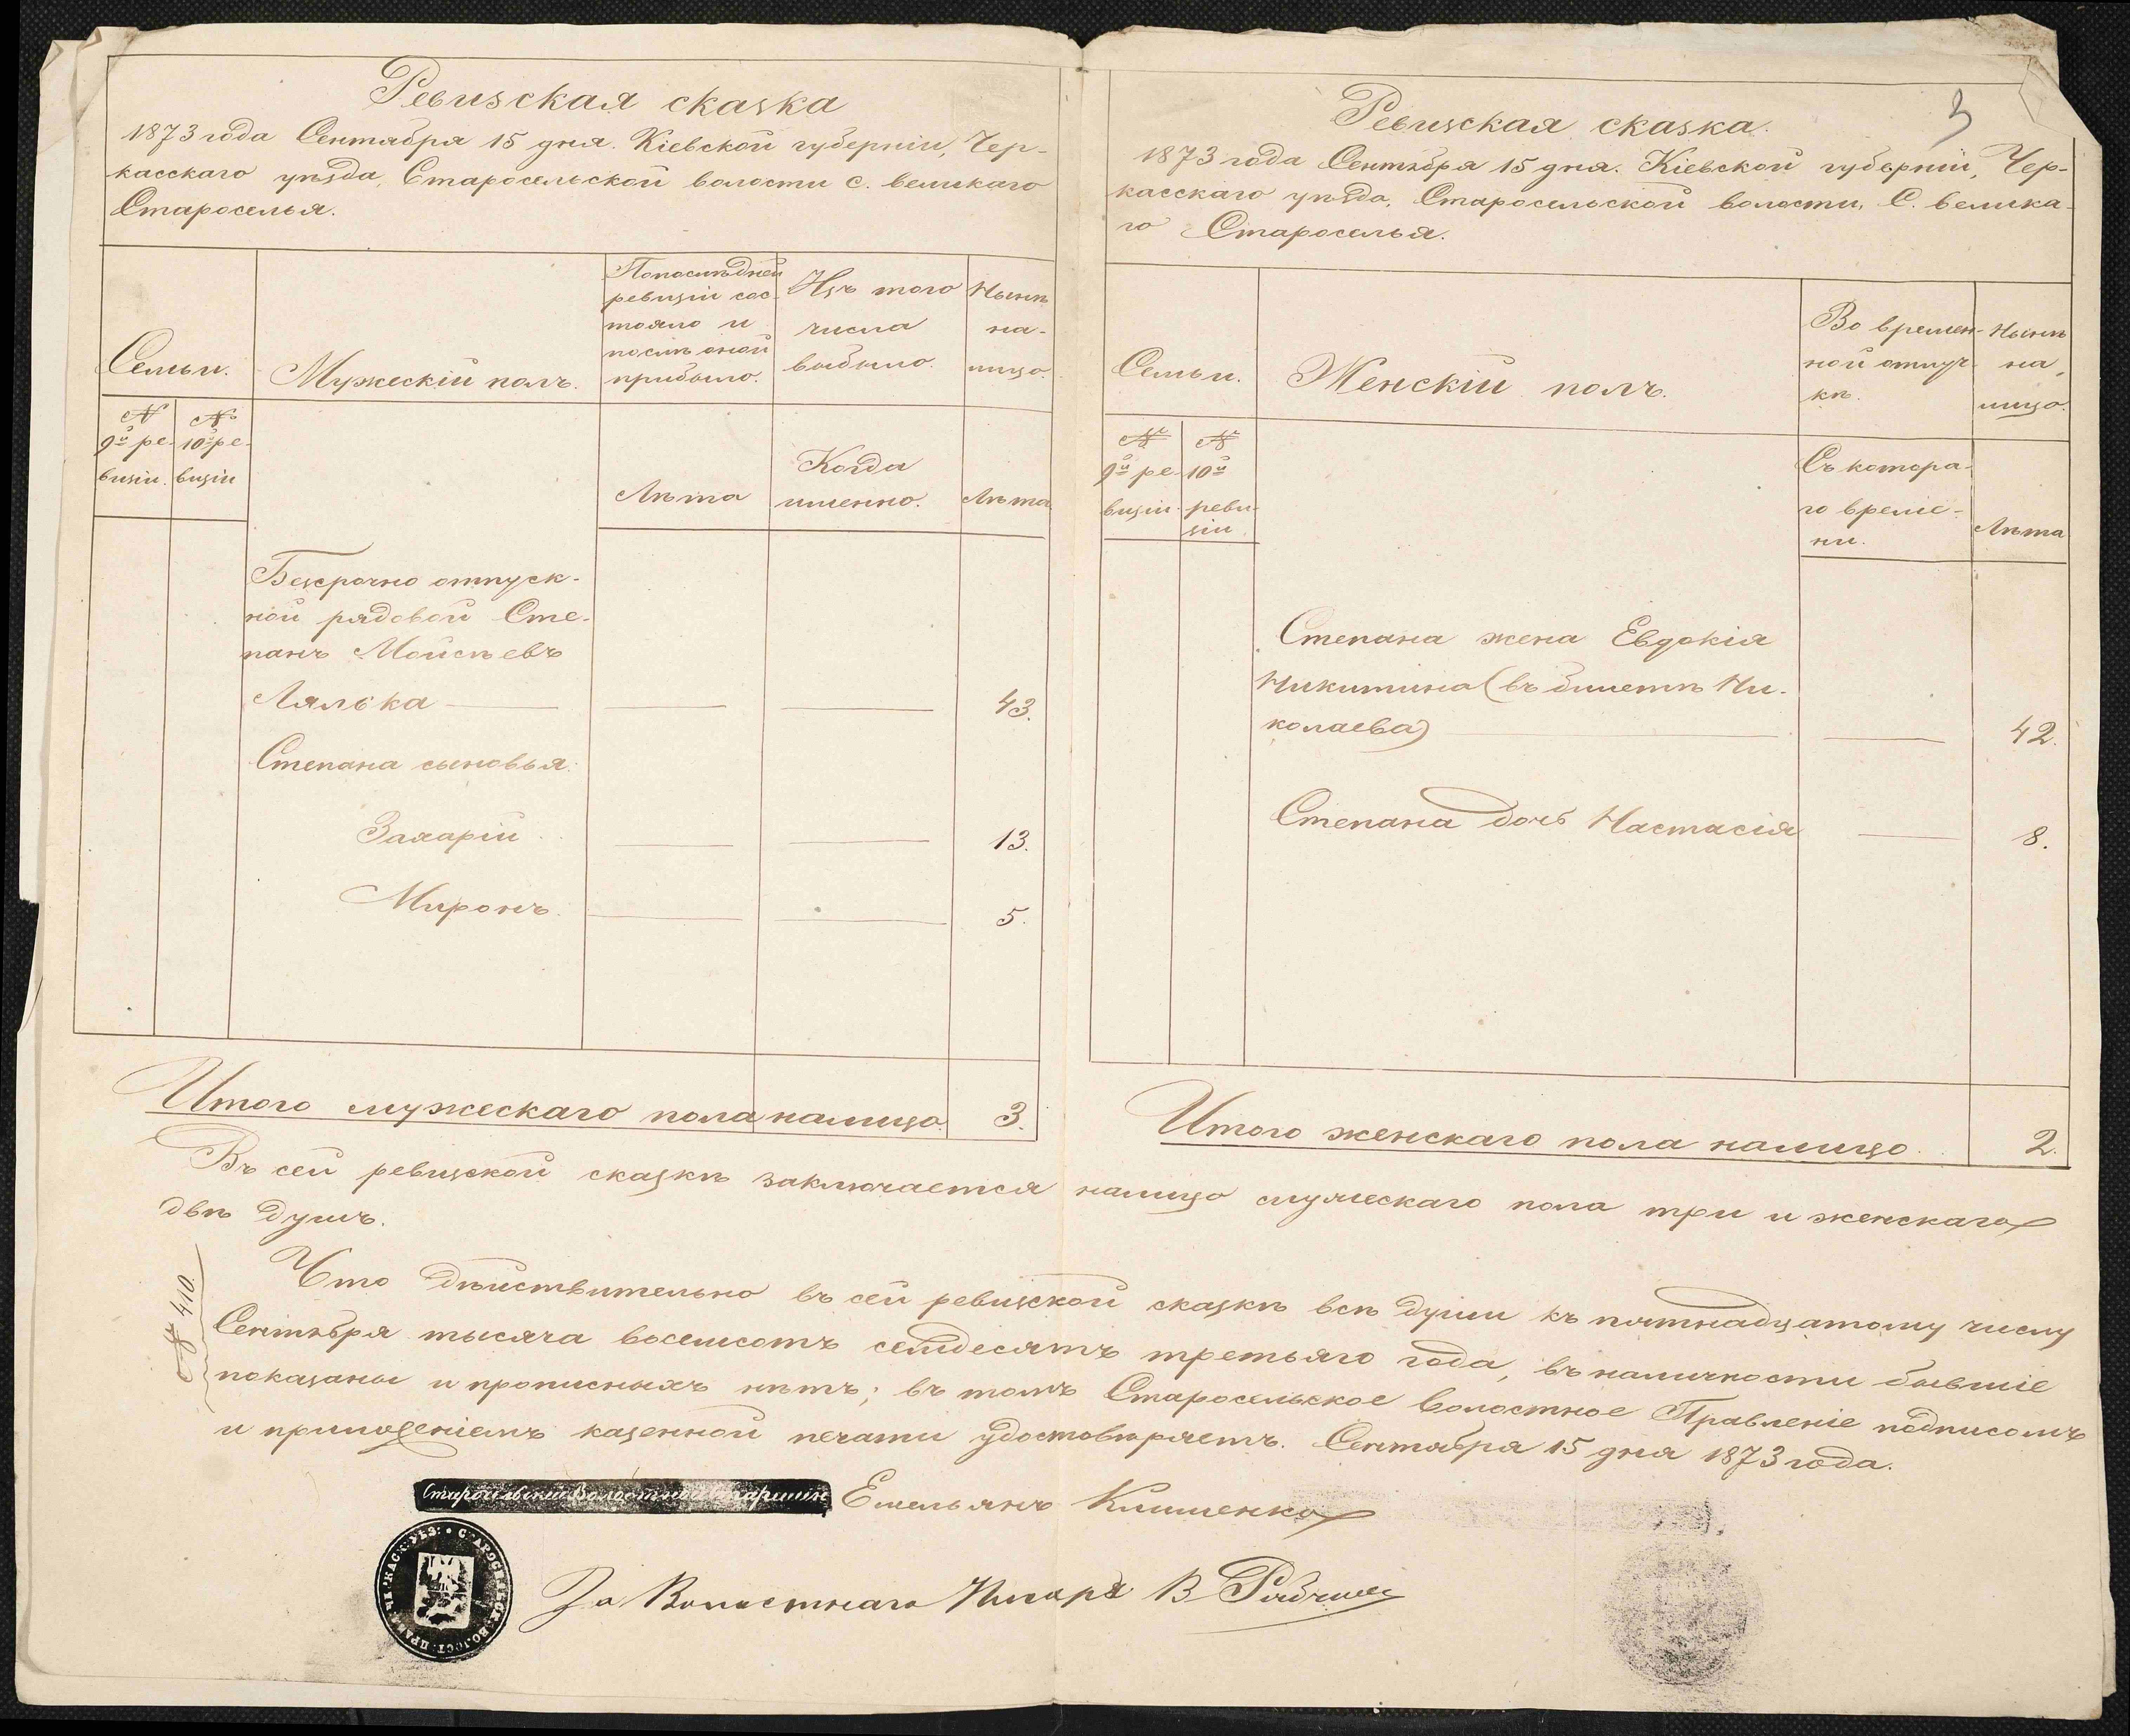 Ревизская сказка
1873 года Сентября 15 дня. Кіевской губерніи, Чер-
касскаго уѣзда, Старосельской волости с. великаго
Староселья.
Семьи.
Мужескій полъ.
По послѣдней
ревизіи сос-
тояло и
послѣ оной
прибыло.
Изъ того
числа
выбыло.
Нынѣ
на-
лицо.
№
9й ре-
визіи.
№
10й ре-
визіи
Лѣта
Когда
именно.
Лѣта.
Безсрочно отпуск-
ной рядовой Сте-
панъ Мойсѣевъ
Лялька 43.
Степана сыновья:
Захарій 13.
Миронъ 5.
Итого мужескаго пола налицо. 3.
3
Ревизская сказка.
1873 года Сентября 15 дня. Кіевской губерніи, Чер-
касскаго уѣзда, Старосельской волости, С. велика-
го Староселья.
Семьи.
Женскій полъ.
Во времен-
ной отлуч-
кѣ.
Нынѣ
на-
лицо.
№
9й ре-
визіи.
№
10й
реви-
зіи.
Съ котора-
го време-
ни.
Лѣта
Степана жена Евдокія
Никитина (въ билетѣ Ни-
колаева) 42.
Степана дочь Настасія 8.
Итого женскаго пола налицо. 2.
Въ сей ревизской сказкѣ заключается налицо мужескаго пола три и женскаго
двѣ душъ.
№ 410.
Что дѣйствительно въ сей ревизской сказкѣ всѣ души къ пятнадцатому числу
Сентября тысяча восемсотъ семдесятъ третьяго года, въ наличности бывшіе
показаны и прописныхъ нѣтъ; въ томъ Старосельское Волостное Правленіе подписомъ
и приложеніемъ казенной печати удостовѣряетъ. Сентября 15 дня 1873 года.
Старосельскій Волостной Старшина Емельянъ Клименко
За Волостнаго Писаря В